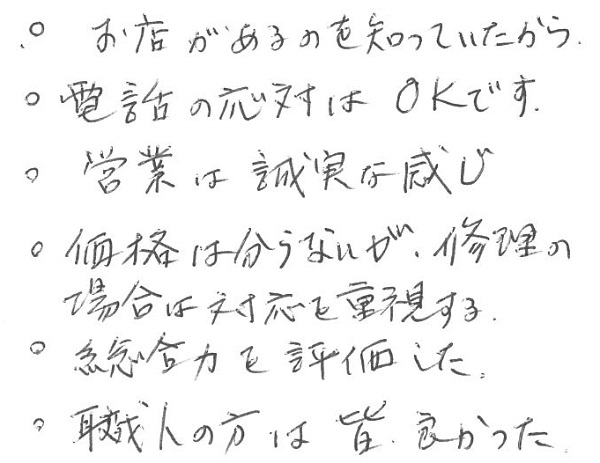 ○ お店があるのを知っていたから.
○ 電話の応対は OKです.
○ 営業は誠実な感じ
○ 価格は分らないが、修理の
場合は対応を重視する.
○ 総合力を評価した.
○ 職人の方は皆、良かった.